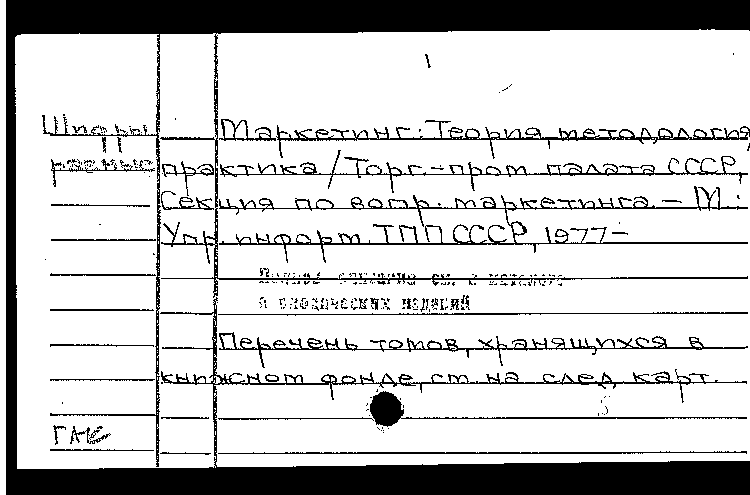 1
Шифры Маркетинг: Теория, методология,
разные практика / Торг.-пром. палата СССР,
Секция по вопр. маркетинга. - М.:
Упр. информ. ТПП СССР, 1977-
Полное описание см. в каталоге
периодических изданий
Перечень томов, хранящихся в
книжном фонде, см. на след. карт.